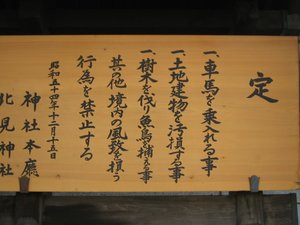 定
一、車馬を乗入れる事
一、土地建物を汚損する事
一、樹木を伐り魚鳥を捕える事
其の他境内の風致を損う
行為を禁止する
昭和五十四年十二月十五日
神社本廳
北見神社